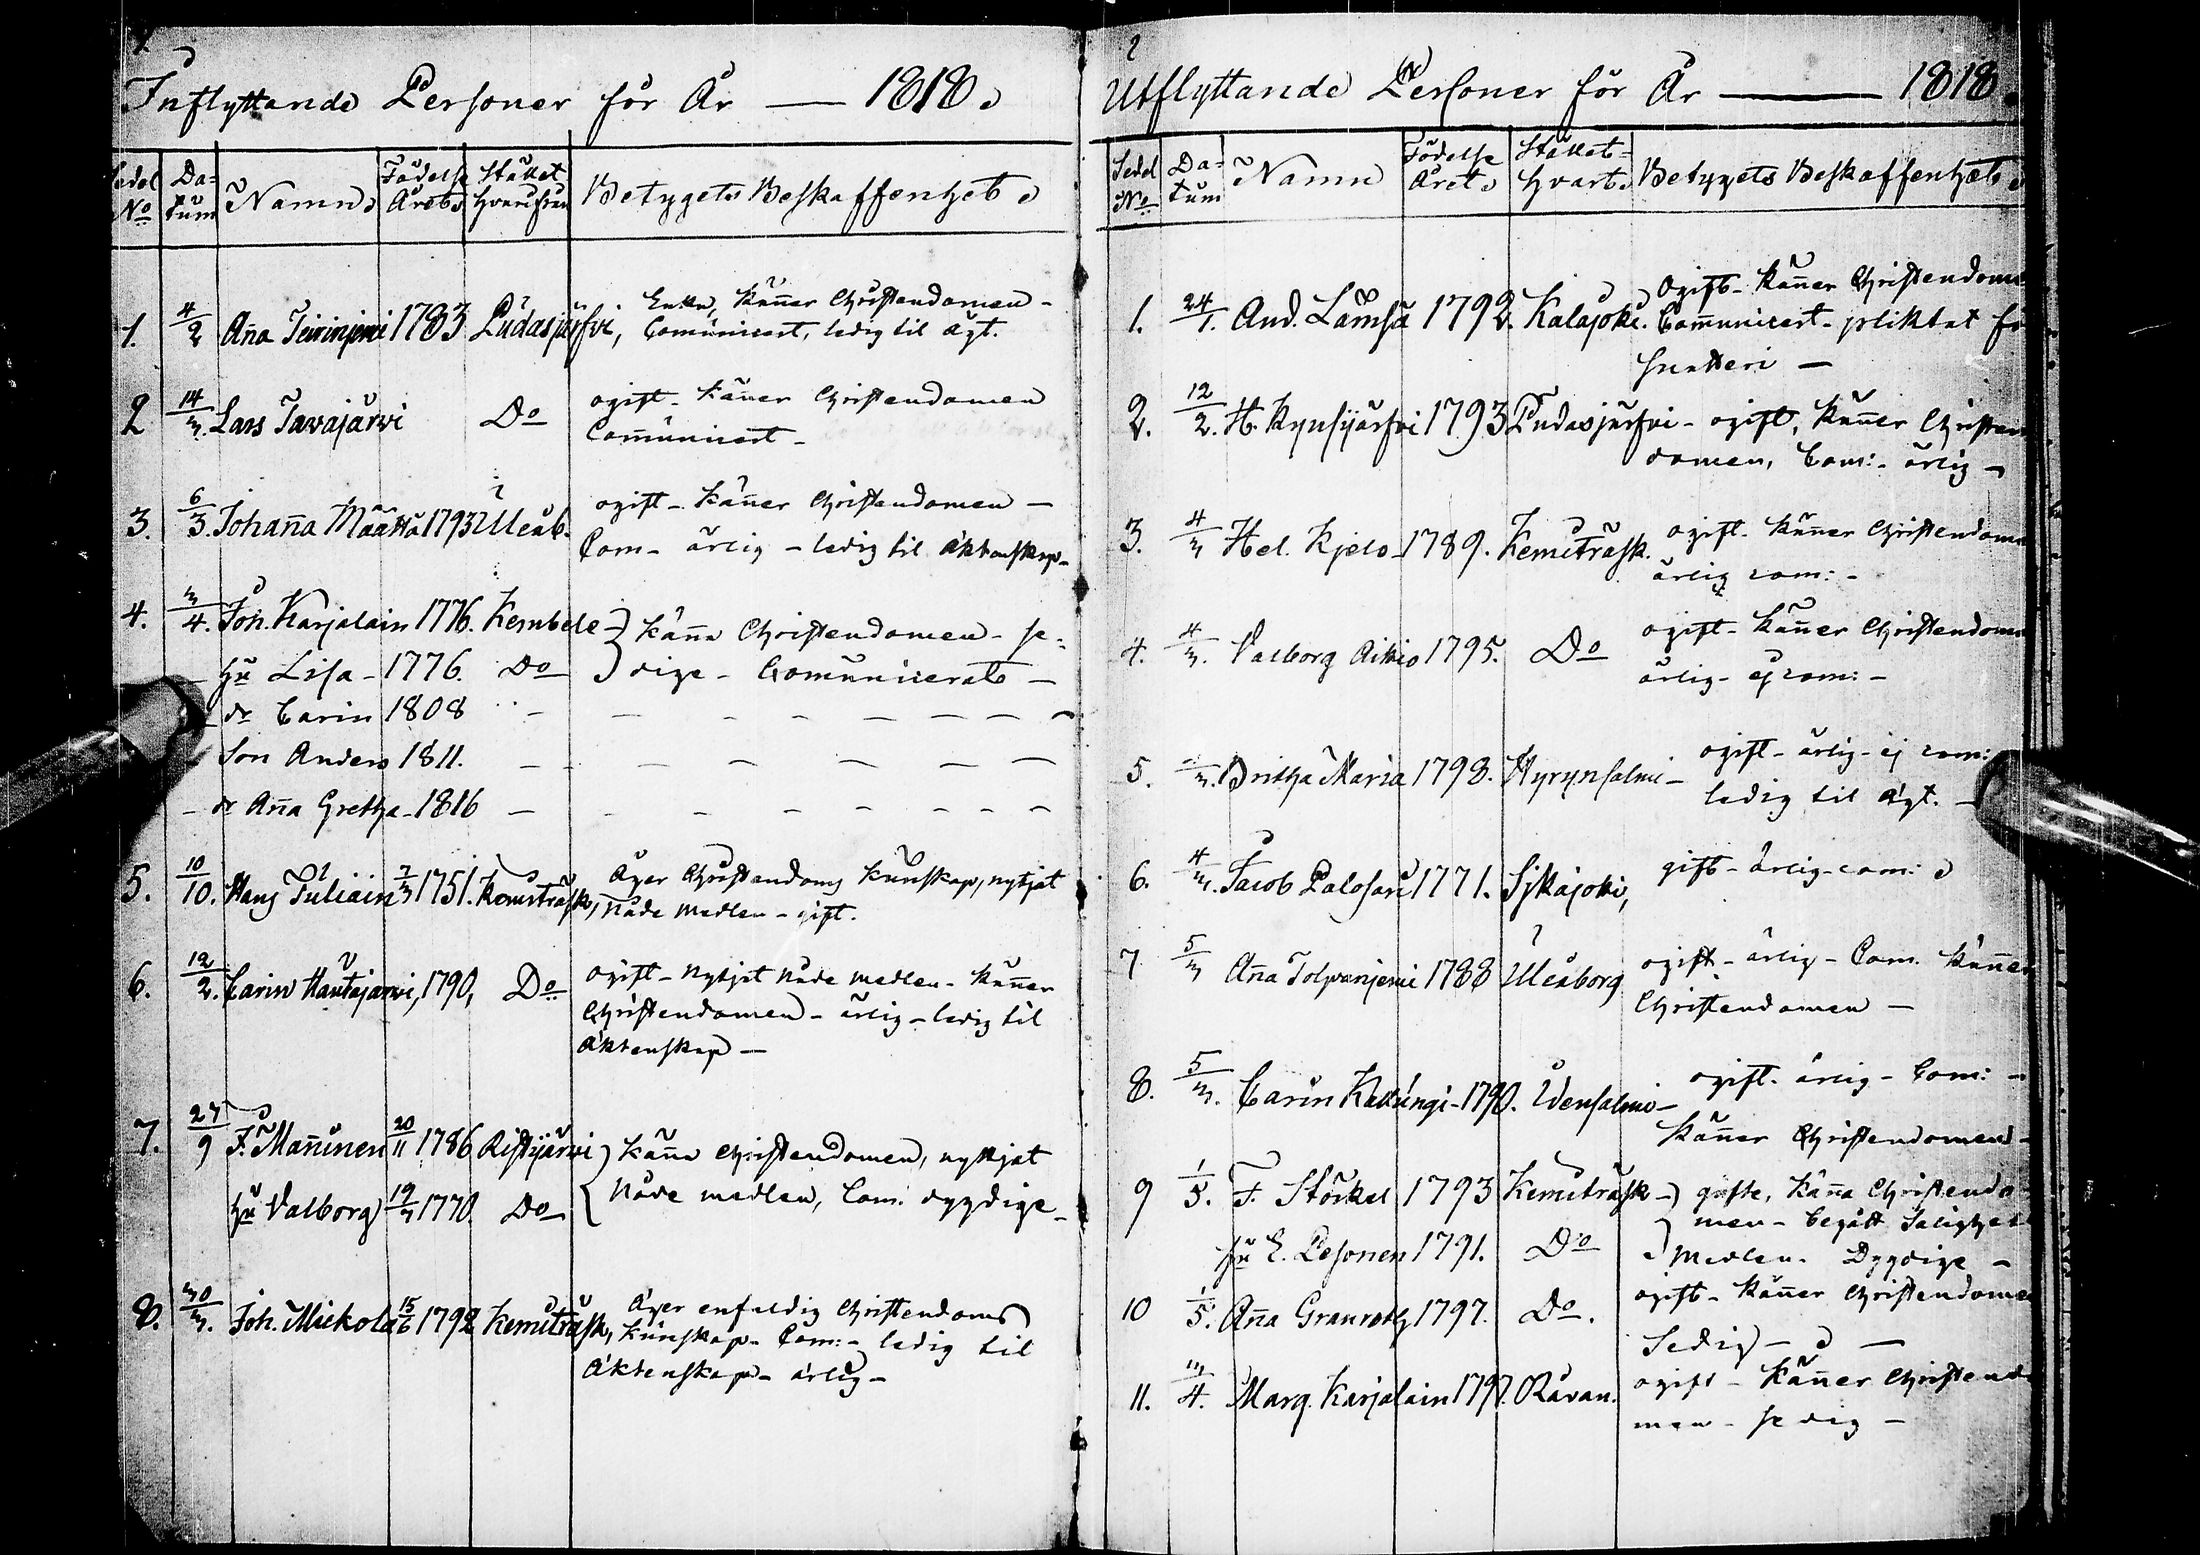 1.
Inflyttande Personer för År — 1818.
Sedel No
Da-tum
Namn.
Födelse Året.
Stället hvarifrån
Betygets Beskaffenhet.
1. 4/2 Anna Teirinjemi 1783 Pudasjärfvi, Enka, känner Christendomen -
Communicert, ledig til ägt.
2 14/3. Lars Tavajärvi Do ogift - känner Christendomen
Communicert -
3. 6/3. Johanna Määttä 1793 Uleåb. ogift - känner Christendomen —
Com - ärlig - ledig til äktenskap -
4. 3/4. Joh. Karjalain 1776. Kembele - känna Christendomen - se-
hu Lisa - 1776. Do dige - Communicerats -
dr Carin 1808
Son Anders 1811.
dr Anna Gretha - 1816
5. 10/10. Hans Juliain 7/3 1751. Kemiträsk, Äger Christendoms kunskap, nytjat
Nåde medlen - gift.
6. 12/2. Carin Hautajärvi, 1790, Do ogift - Nytjat Nåde medlen - känner
Christendomen - ärlig - ledig til
äktenskap —
7. 27/9 J. Manninen 20/11 1786 Ristijärvi känna Christendomen, nyttjat
hu Valborg 19/3 1770. Do Nåde medlen, Com: dygdige -
8. 30/3. Joh. Mickola 15/6 1792 Kemiträsk, Äger enfaldig Christendoms
kunskap - Com: - ledig til
äktenskap - ärlig -
2
Utflyttande Personer för År — 1818.
Sedel No
Da-tum
Namn
Födelse Året.
Stället hvart.
Betygets Beskaffenhet.
1. 24/1. And. Lämsä 1792. Kalajoki. Ogift - känner Christendome
Communicert - pliktat fö
snatteri —
2. 12/2. H. Kynsijärfvi 1793 Pudasjärfvi - ogift, känner Christen
domen, Com: - ärlig -
3. 4/3 Hel. Kjelo - 1789. Kemiträsk. ogift - känner Christendome
ärlig com: -
4. 4/3. Valborg Aikio 1795. Do ogift - känner Christendome
ärlig - ej com: -
5. /3. Britha Maria 1798. Hyrynsalmi - ogift - ärlig - ej com:
ledig til ägt. -
6. 4/3. Jacob Palosari 1771. Sikajoki, gift - ärlig - com:
7 5/3 Anna Tolpanjemi 1788 Uleåborg ogift - ärlig - Com. känner
Christendomen —
8. 5/3. Carin Kallungi - 1790. Idensalmi - ogift - ärlig - Com: -
känner Christendomen -
9 1/5. F. Störkel 1793 Kemiträsk - gifte, känna Christendo
men - begått Salighets
hu E. Pesonen 1791. Do medlen. Dygdige -
10 1/5. Anna Granroth 1797. Do. ogift - känner Christendome
Sedig - —
11. 3/4. Marg. Karjalain 1797. Råvan. ogift - känner Christendo
men - sedig -